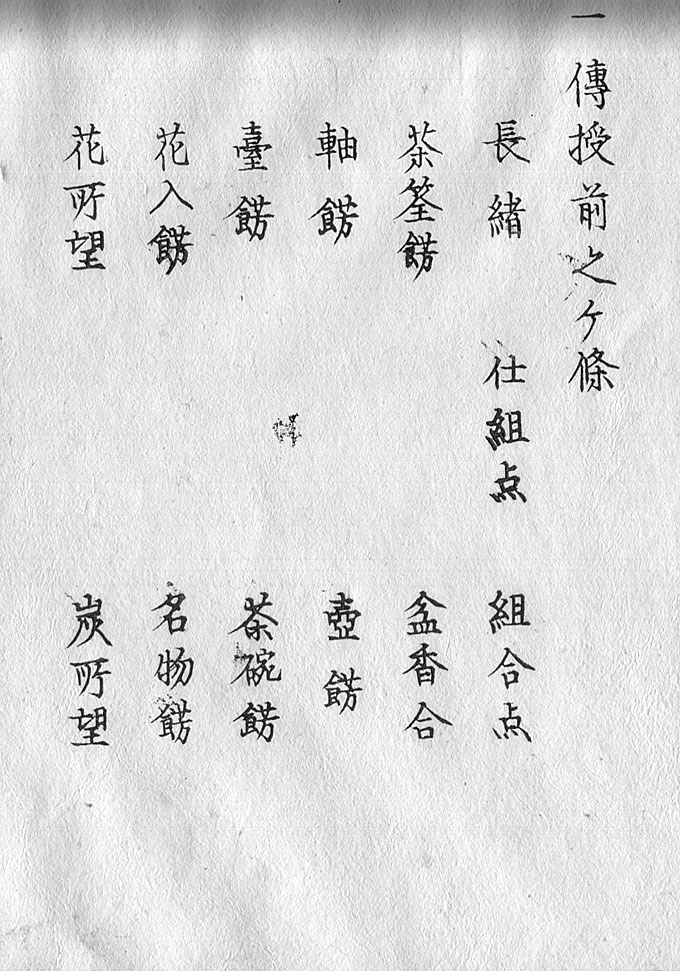 一 傳授前之ケ條
長緒 仕組点 組合点
茶筌餝 盆香合
軸餝 壺餝
臺餝 茶碗餝
花入餝 名物餝
花所望 炭所望